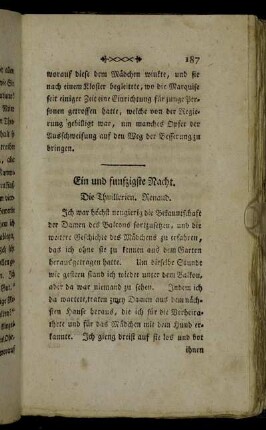 187
worauf diese dem Mädchen winkte, und sie
nach einem Kloster begleitete, wo die Marquise
seit einiger Zeit eine Einrichtung für junge Per-
sonen getroffen hatte, welche von der Regie-
rung gebilligt war, um manches Opfer der
Ausschweifung auf den Weg der Besserung zu
bringen.
Ein und funfzigste Nacht.
Die Thuillerien. Renaud.
Ich war höchst neugierig die Bekanntschaft
der Damen des Balkons fortzusetzen, und die
weitere Geschichte des Mädchens zu erfahren,
das ich ohne sie zu kennen aus dem Garten
herausgetragen hatte. Um dieselbe Stunde
wie gestern stand ich wieder unter dem Balkon,
aber da war niemand zu sehen. Indem ich
da wartete, traten zwey Damen aus dem näch-
sten Hause heraus, die ich für die Verheira-
thete und für das Mädchen mit dem Hund er-
kannte. Ich gieng dreist auf sie los und bot
ihnen